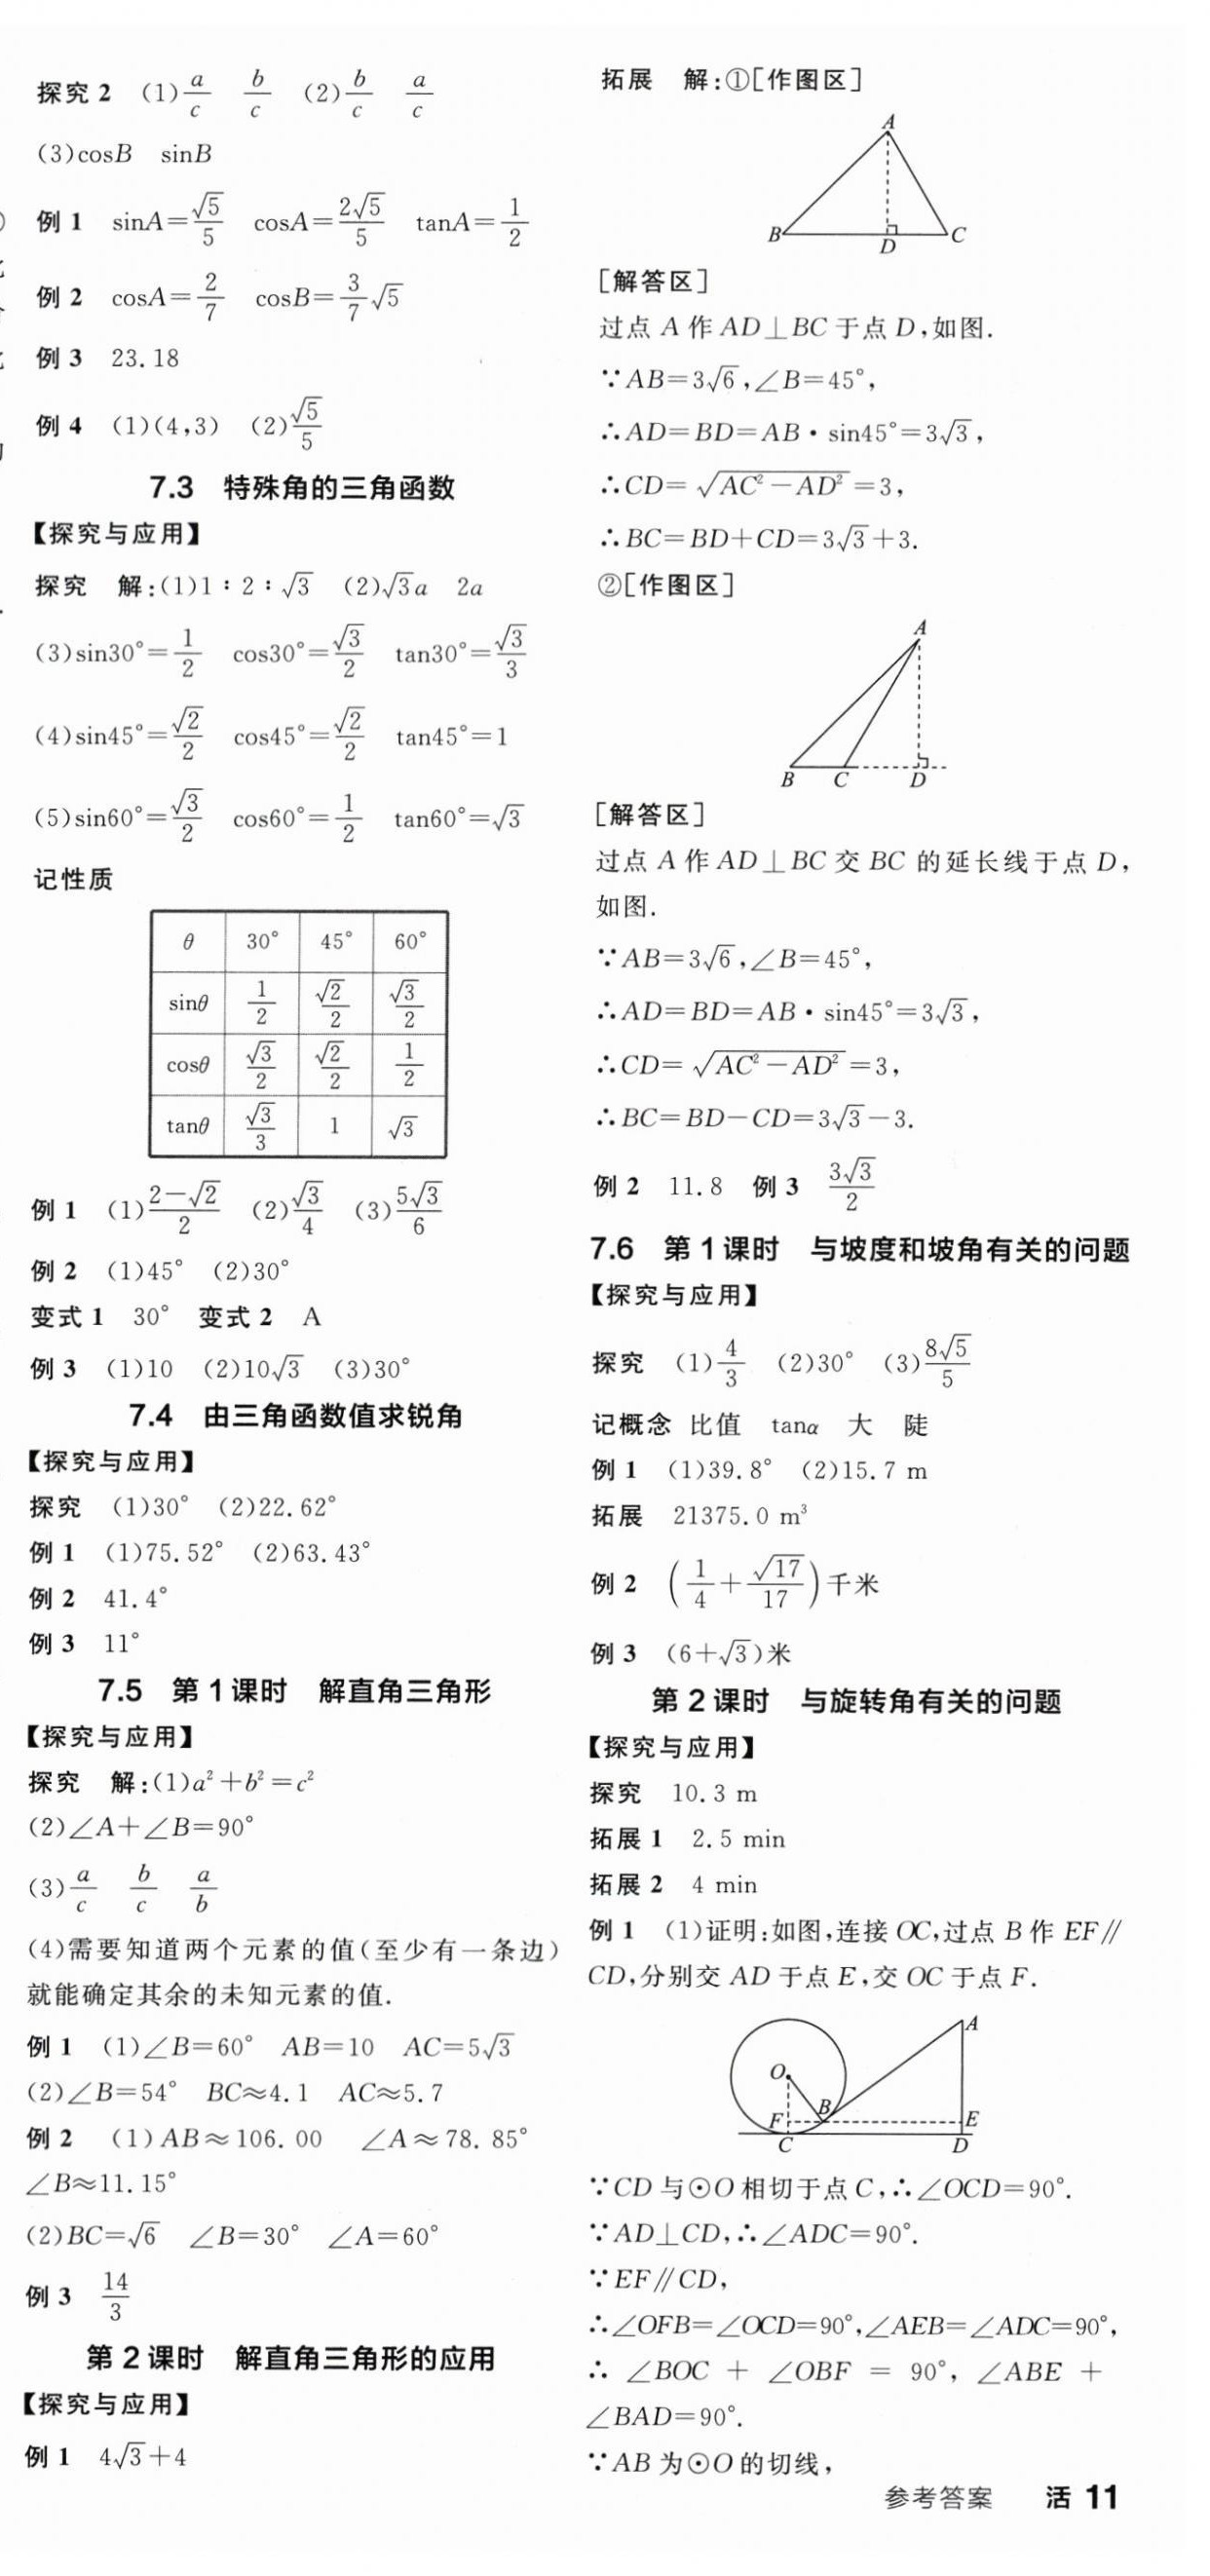 探究 2 (1)a/c b/c (2)b/c a/c
(3)cosB sinB
例 1 sinA=√5/5 cosA=2√5/5 tanA=1/2
例 2 cosA=2/7 cosB=3/7√5
例 3 23.18
例 4 (1)(4,3) (2)√5/5
7.3 特殊角的三角函数
【探究与应用】
探究 解:(1)1∶2∶√3 (2)√3a 2a
(3)sin30°=1/2 cos30°=√3/2 tan30°=√3/3
(4)sin45°=√2/2 cos45°=√2/2 tan45°=1
(5)sin60°=√3/2 cos60°=1/2 tan60°=√3
记性质
θ 30° 45° 60°
sinθ 1/2 √2/2 √3/2
cosθ √3/2 √2/2 1/2
tanθ √3/3 1 √3
例 1 (1)(2-√2)/2 (2)√3/4 (3)5√3/6
例 2 (1)45° (2)30°
变式 1 30° 变式 2 A
例 3 (1)10 (2)10√3 (3)30°
7.4 由三角函数值求锐角
【探究与应用】
探究 (1)30° (2)22.62°
例 1 (1)75.52° (2)63.43°
例 2 41.4°
例 3 11°
7.5 第 1 课时 解直角三角形
【探究与应用】
探究 解:(1)a²+b²=c²
(2)∠A+∠B=90°
(3)a/c b/c a/b
(4)需要知道两个元素的值(至少有一条边)
就能确定其余的未知元素的值.
例 1 (1)∠B=60° AB=10 AC=5√3
(2)∠B=54° BC≈4.1 AC≈5.7
例 2 (1)AB≈106.00 ∠A≈78.85°
∠B≈11.15°
(2)BC=√6 ∠B=30° ∠A=60°
例 3 14/3
第 2 课时 解直角三角形的应用
【探究与应用】
例 1 4√3+4
拓展 解:①[作图区]
A
B D C
[解答区]
过点 A 作 AD⊥BC 于点 D,如图.
∵AB=3√6,∠B=45°,
∴AD=BD=AB·sin45°=3√3,
∴CD=√(AC²-AD²)=3,
∴BC=BD+CD=3√3+3.
②[作图区]
A
B C D
[解答区]
过点 A 作 AD⊥BC 交 BC 的延长线于点 D,
如图.
∵AB=3√6,∠B=45°,
∴AD=BD=AB·sin45°=3√3,
∴CD=√(AC²-AD²)=3,
∴BC=BD-CD=3√3-3.
例 2 11.8 例 3 3√3/2
7.6 第 1 课时 与坡度和坡角有关的问题
【探究与应用】
探究 (1)4/3 (2)30° (3)8√5/5
记概念 比值 tanα 大 陡
例 1 (1)39.8° (2)15.7 m
拓展 21375.0 m³
例 2 (1/4+√17/17)千米
例 3 (6+√3)米
第 2 课时 与旋转角有关的问题
【探究与应用】
探究 10.3 m
拓展 1 2.5 min
拓展 2 4 min
例 1 (1)证明:如图,连接 OC,过点 B 作 EF∥
CD,分别交 AD 于点 E,交 OC 于点 F.
A
O
F B E
C D
∵CD 与⊙O 相切于点 C,∴∠OCD=90°.
∵AD⊥CD,∴∠ADC=90°.
∵EF∥CD,
∴∠OFB=∠OCD=90°,∠AEB=∠ADC=90°,
∴ ∠BOC + ∠OBF = 90°, ∠ABE +
∠BAD=90°.
∵AB 为⊙O 的切线,
参考答案 活 11